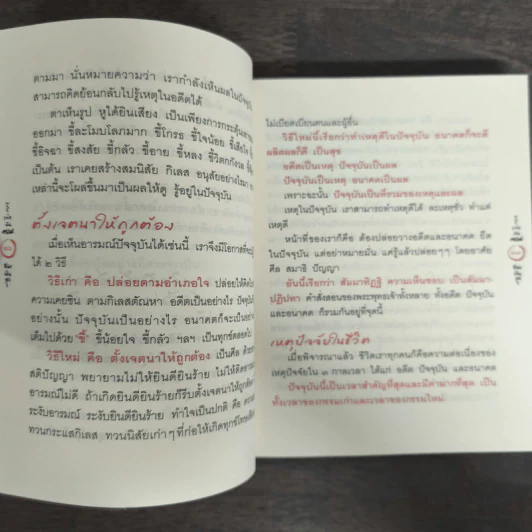 ตามมา นั่นหมายความว่า เรากำลังเห็นผลในปัจจุ
สามารถคิดย้อนกลับไปรู้เหตุในอดีตได้
ตาเห็นรูป หูได้ยินเสียง เป็นเพียงการกระตุ้น
ออกมา ขี้ละโมบโลภมาก ขี้โกรธ ขี้ใจน้อย ขี้เสียใจ
ขี้อิจฉา ขี้สงสัย ขี้กลัว ขี้อาย ขี้หลง ขี้วิตกกังวล
เป็นต้น เราเคยสร้างสมนิสัย กิเลส อนุสัยอย่างไรมา
เหล่านี้จะโผล่ขึ้นมาเป็นผลให้ดู รู้อยู่ในปัจจุบัน
ตั้งเจตนาให้ถูกต้อง
เมื่อเห็นอารมณ์ปัจจุบันได้เช่นนี้ เราจึงมีโอกาสที่จะ
ได้ ๒ วิธี
วิธีเก่า คือ ปล่อยตามอำเภอใจ ปล่อยให้คิด
ความเคยชิน ตามกิเลสตัณหา อดีตเป็นอย่างไร ปัจจุ
อย่างนั้น ปัจจุบันเป็นอย่างไร อนาคตก็จะเป็นอย่าง
เต็มไปด้วย "ขี้" ขี้น้อยใจ ขี้กลัว ฯลฯ เป็นทุกข์ตลอดไป
วิธีใหม่ คือ ตั้งเจตนาให้ถูกต้อง เป็นศีล ด้วย
สติปัญญา พยายามไม่ให้ยินดียินร้าย ไม่ให้คิด
อารมณ์ไม่ดี ถ้าเกิดยินดียินร้ายก็รีบตั้งเจตนาให้ถูกต้อง
ระงับอารมณ์ ระงับยินดียินร้าย ทำใจเป็นปกติ คือ
ทวนกระแสกิเลส ทวนนิสัยเก่าๆ ที่ก่อให้เกิดทุกข์
ไม่เบียดเบียนตนและผู้อื่น
วิธีใหม่นี้เรียกว่าทำเหตุดีในปัจจุบัน อนาคตก็จะดี
ผลิตผลก็ดี เป็นสุข
อดีตเป็นเหตุ ปัจจุบันเป็นผล
ปัจจุบันเป็นเหตุ อนาคตเป็นผล
เพราะฉะนั้น ปัจจุบันเป็นที่รวมของเหตุและผล
เหตุในปัจจุบัน เราสามารถทำเหตุดีได้ ละเหตุชั่ว ทำแต่
เหตุดี
หน้าที่ของเราก็คือ ต้องปล่อยวางอดีตและอนาคต ยึด
ในปัจจุบัน แต่อย่าหมายมั่น แค่รู้แล้วเปล่อยๆ โดยอาศัย
ศีล สมาธิ ปัญญา
อันนี้เรียกว่า สัมมาทิฏฐิ ความเห็นชอบ เป็นสัมมา-
ปฏิปทา คำสั่งสอนของพระพุทธเจ้าทั้งหลาย ทั้งอดีต ปัจจุบัน
และอนาคต ก็รวมกันอยู่ที่จุดนี้
เหตุปัจจัยในชีวิต
เมื่อพิจารณาแล้ว ชีวิตเราทุกคนก็คือความต่อเนื่องของ
เหตุปัจจัยใน ๓ กาลเวลา ได้แก่ อดีต ปัจจุบัน และอนาคต
ปัจจุบันนี้เป็นเวลาสำคัญที่สุดและมีค่ามากที่สุด เป็น
ทั้งเวลาของกรรมเก่าและเวลาของกรรมใหม่